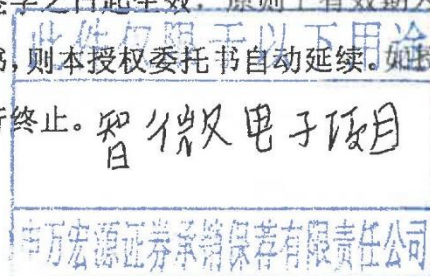 签字之日此生效,原则上有效期为
此件仅限于以下用途
书,则本授权委托书自动延续。如授
行终止。
智微电子项目
申万宏源证券承销保荐有限责任公司